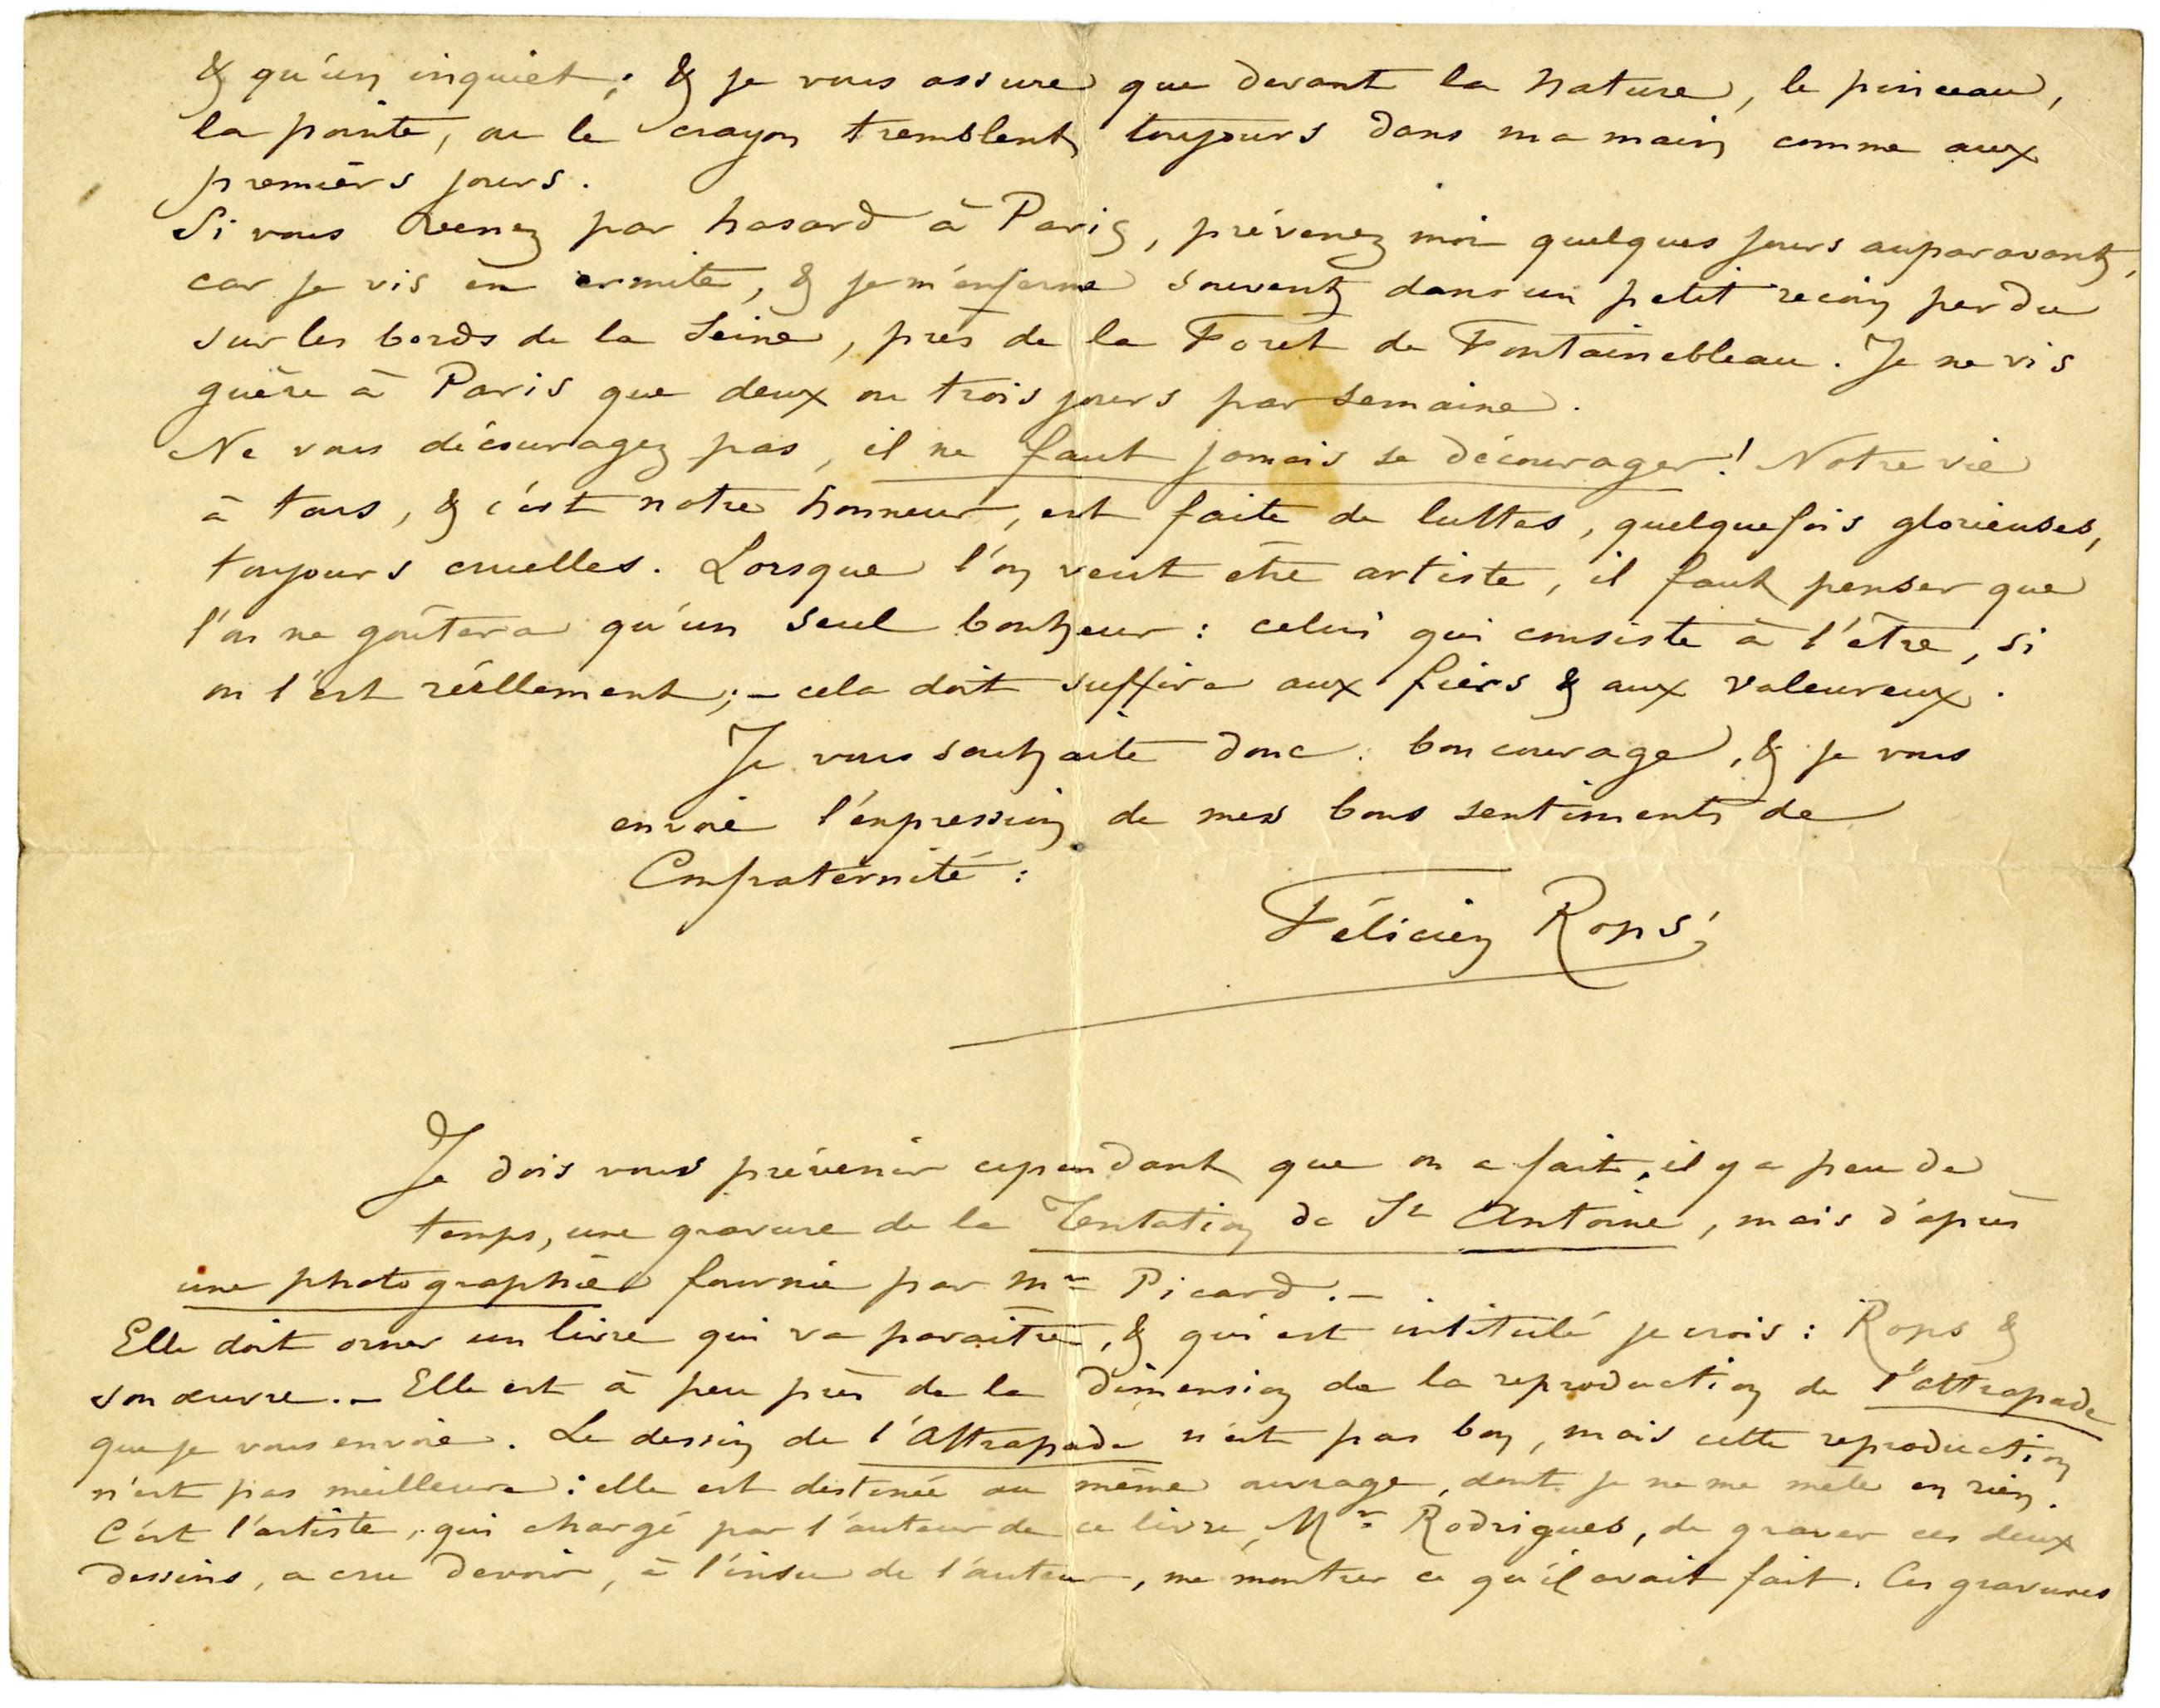 & qu'un inquiet ; & je vous assure que devant la nature, le pinceau,
la pointe, ou le crayon tremblent toujours dans ma main comme aux
premiers jours.
Si vous venez par hasard à Paris, prévenez moi quelques jours auparavant,
car je vis en ermite, & je m'enferme souvent dans un petit recoin perdu
sur les bords de la Seine, près de la Foret de Fontainebleau. Je ne vis
guère à Paris que deux ou trois jours par semaine.
Ne vous découragez pas, il ne faut jamais se décourager ! Notre vie
à tous, & c'est notre honneur, est faite de luttes, quelquefois glorieuses,
toujours cruelles. Lorsque l'on veut être artiste, il faut penser que
l'on ne goûtera qu'un seul bonheur : celui qui consiste à l'être, si
on l'est réellement ; – cela doit suffire aux fiers & aux valeureux.
Je vous souhaite donc : bon courage, & je vous
envoie l'expression de mes bons sentiments de
Confraternité :
Félicien Rops
Je dois vous prévenir cependant que on a fait, il y a peu de
temps, une gravure de la Tentation de St Antoine, mais d'après
une photographie fournie par Mr Picard. –
Elle doit orner un livre qui va paraître, & qui est intitulé je crois : Rops &
son œuvre. – Elle est à peu près de la dimension de la reproduction de l'Attrapade
que je vous envoie. Le dessin de l'Attrapade n'est pas bon, mais cette reproduction
n'est pas meilleure : elle est destinée au même ouvrage, dont je ne me mêle en rien.
C'est l'artiste, qui chargé par l'auteur de ce livre, Mr Rodrigues, de graver ces deux
dessins, a cru devoir, à l'insu de l'auteur, me montrer ce qu'il avait fait. Ces gravures